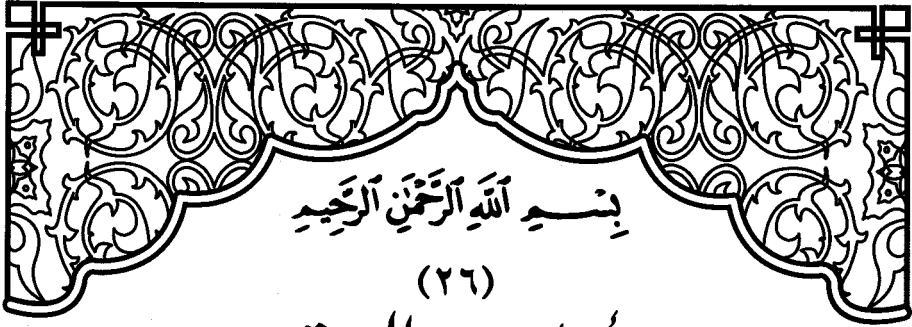 بِسْمِ ٱللَّهِ ٱلرَّحْمَٰنِ ٱلرَّحِيمِ
(٢٦)